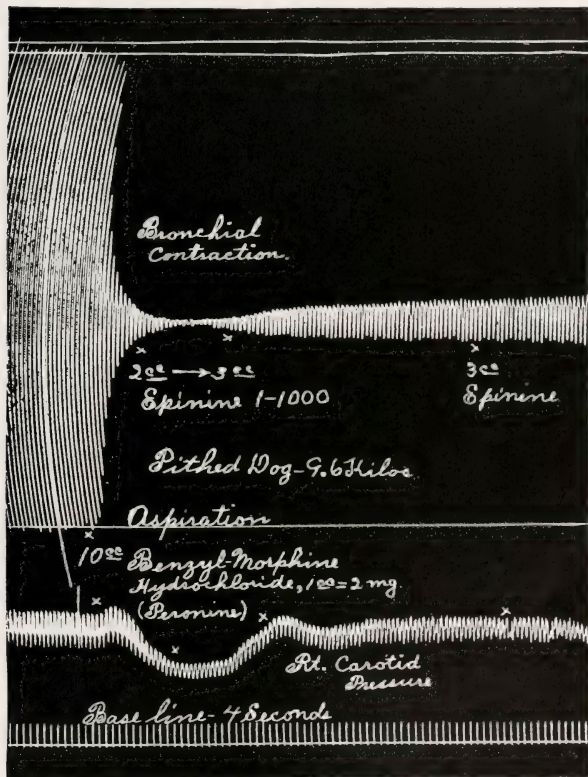 Bronchial
Contraction.
2 cc → 3 cc
Epinine 1-1000
3 cc
Epinine
Pithed Dog-9.6 Kilos
Aspiration
10 cc Benzyl-Morphine
Hydrochloride, 1 cc = 2 mg.
(Peronine)
Rt. Carotid
Pressure
Base line - 4 Seconds